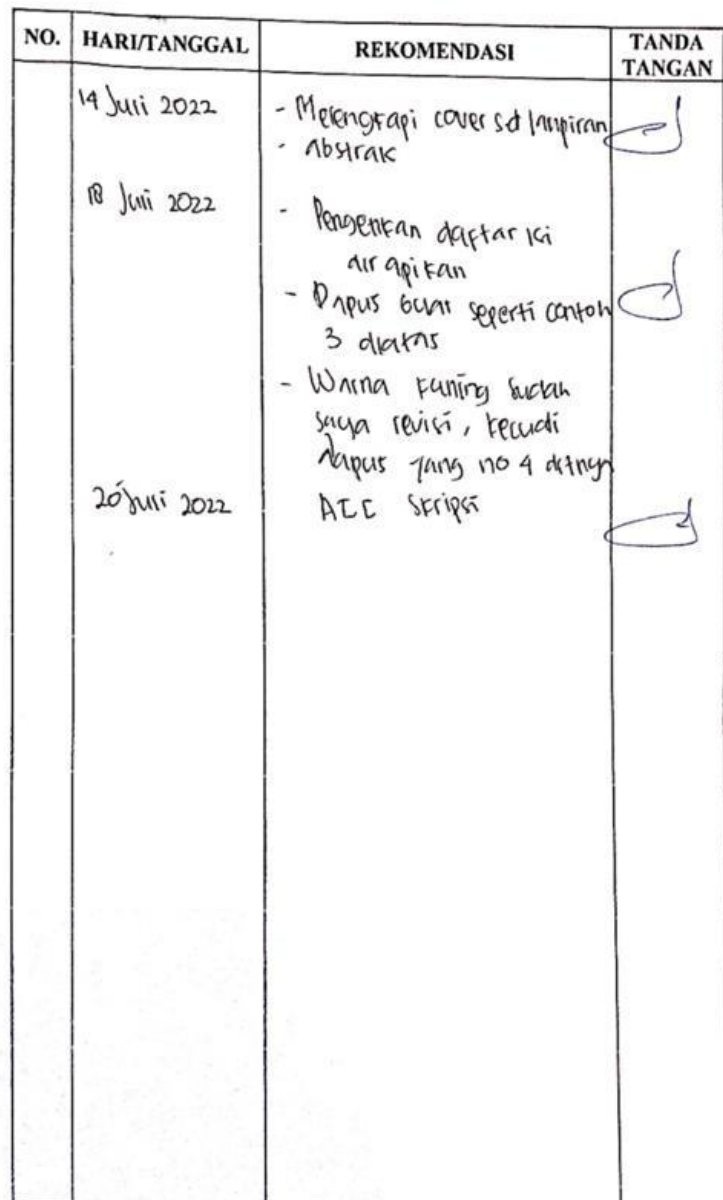 NO. HARI/TANGGAL REKOMENDASI TANDA TANGAN
14 Juli 2022 - Melengkapi cover sd lampiran
- Abstrak
18 Juli 2022 - Pengetikan daftar isi
dirapikan
- Dapus buat seperti contoh
3 diatas
- Warna kuning sudah
saya revisi, kecuali
dapus yang no 4
20 Juli 2022 ACC Skripsi